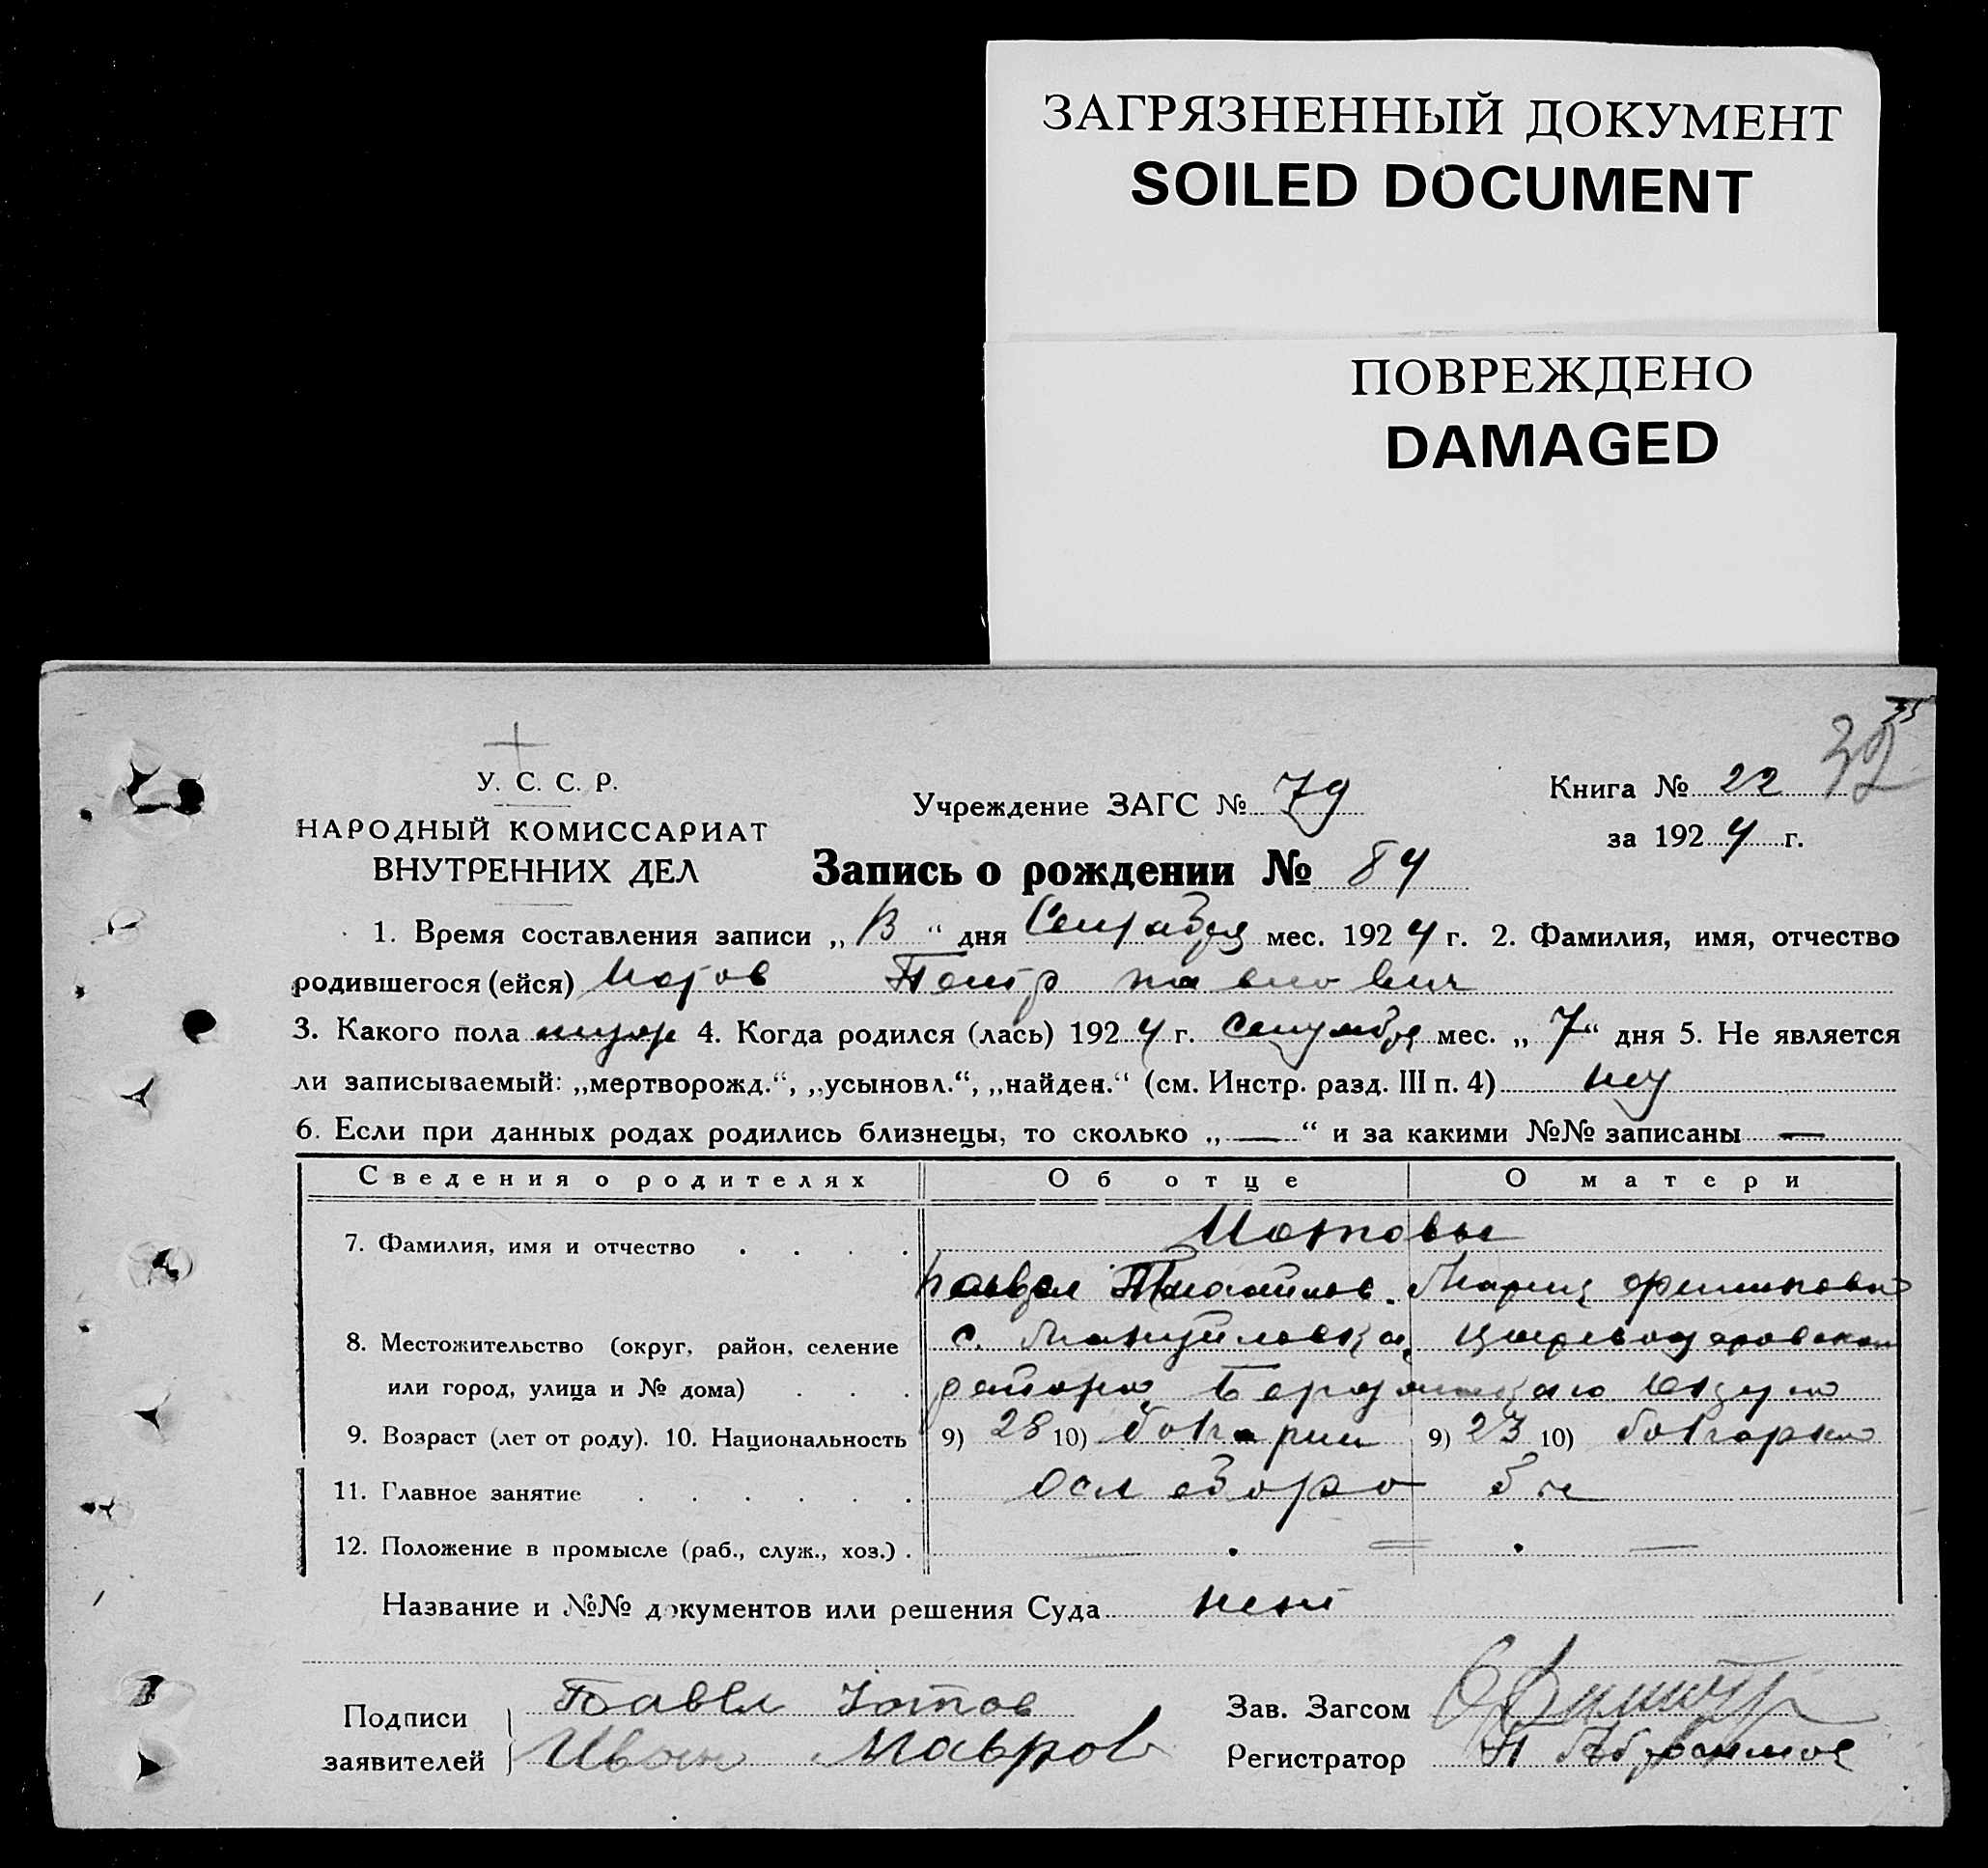 ЗАГРЯЗНЕННЫЙ ДОКУМЕНТ
SOILED DOCUMENT
ПОВРЕЖДЕНО
DAMAGED
У. С. С. Р.
НАРОДНЫЙ КОМИССАРИАТ
ВНУТРЕННИХ ДЕЛ
Учреждение ЗАГС № 79
Книга № 22
за 1924 г.
Запись о рождении № 84
1. Время составления записи „ “ дня Сентября мес. 1924 г. 2. Фамилия, имя, отчество
родившегося (ейся) Петр Павлович
3. Какого пола муж 4. Когда родился (лась) 1924 г. Сентября мес. „ 7 “ дня 5. Не является
ли записываемый: „мертворожд.“, „усыновл.“, „найден.“ (см. Инстр. разд. III п. 4) нет
6. Если при данных родах родились близнецы, то сколько „ — “ и за какими №№ записаны —
Сведения о родителях Об отце О матери
7. Фамилия, имя и отчество
Павел Мария
8. Местожительство (округ, район, селение с. Мануйловка
или город, улица и № дома) района
9. Возраст (лет от роду). 10. Национальность 9) 28 10) болгарин 9) 23 10) болгарка
11. Главное занятие
12. Положение в промысле (раб., служ., хоз.) . — —
Название и №№ документов или решения Суда нет
Подписи заявителей
Иван Мавров
Зав. Загсом
Регистратор